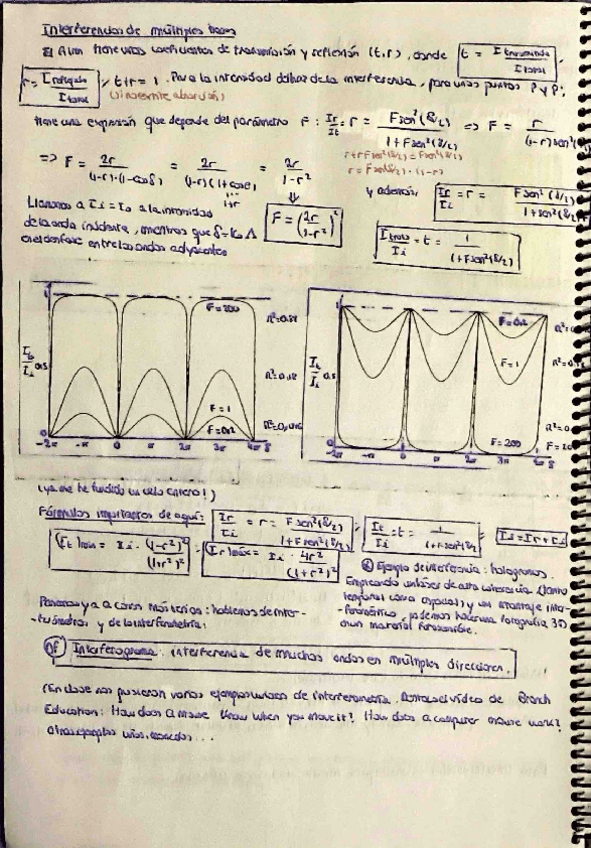 Interferencias de múltiples haces
El film tiene unos coeficientes de transmisión y reflexión (t,r), donde t = I transmitida / I total
r = I reflejada / I total , t+r = 1. Para la intensidad de la interferencia, para unos puntos P y P',
(si no existe absorción)
tiene una expresión que depende del parámetro F: Ir/It = r = F sen²(δ/2) / 1+Fsen²(δ/2) => F = r / (1-r)sen²(
r+rFsen²(δ/2) = Fsen²(δ/2)
r = Fsen²(δ/2)·(1-r)
=> F = 2r / (1-r)·(1-cosδ) = 2r / (1-r)(1+cosθ) = 2r / 1-r²
1+r
⇓
Llamamos a Ii = Io a la intensidad
de la onda incidente, mientras que δ = k₀Λ
es el desfase entre las ondas adyacentes
F = (2r / 1-r²)²
y además: Ir/Ii = r = F sen²(δ/2) / 1+Fsen²(δ/2)
Itrans/Ii = t = 1 / (1+Fsen²(δ/2))
1
F = 200
R²=0.87
Ir/Ii 0.5
R²=0.18
F = 1
F = 0.2
R²=0,046
0
-2π -π 0 π 2π 3π 4π δ
1
F = 0.2
It/Ii 0.5
F = 1
F = 200
0
-2π -π 0 π 2π 3π 4π δ
(ya me he fundido un celo entero!)
Fórmulas importantes de aquí: Ir/Ii = r = Fsen²(δ/2) / 1+Fsen²(δ/2) , It/Ii = t = 1 / 1+Fsen²(δ/2)
(It)min = Ii · (1-r²)² / (1+r²)² (Ir)máx = Ii · 4r² / (1+r²)²
Ejemplo de interferencia: hologramas.
Empleando un láser de alta coherencia (tanto
temporal como espacial) y un montaje inter-
-ferométrico, podemos hacer una fotografía 3D
con un material fotosensible.
Pasamos ya a cosas más serias: hablemos de inter-
-ferómetros y de la interferometría.
Df) Interferograma: interferencia de muchas ondas en múltiples direcciones.
(En clase nos pusieron varios ejemplos de interferometría. el vídeo de Branch
Education: How does a mouse know when you move it? How does a computer mouse work?